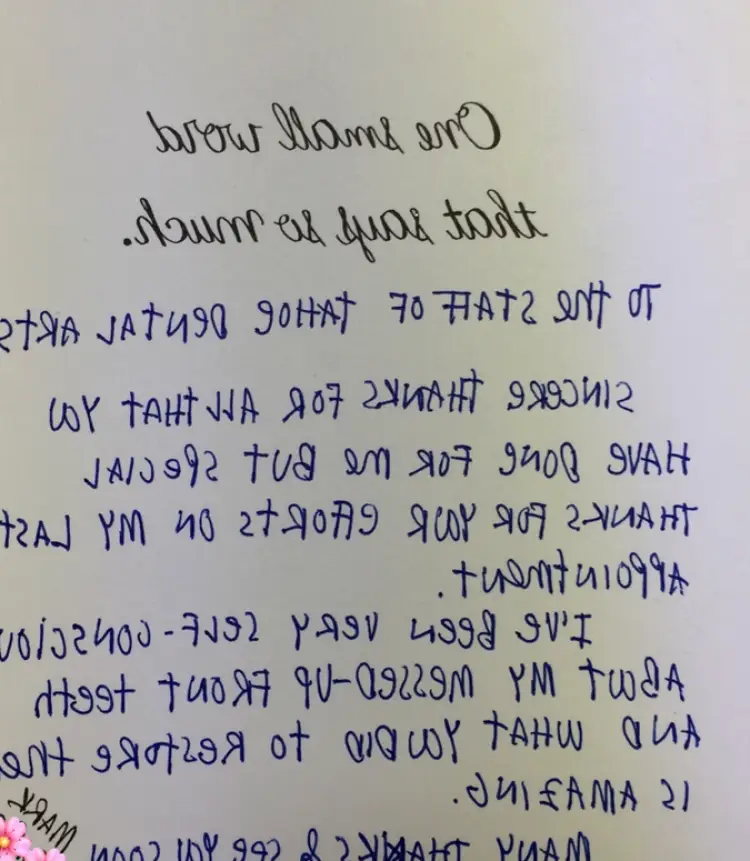 One small word
that says so much.
TO the STAFF OF TAHOE DENTAL ARTS
SINCERE THANKS FOR ALL THAT YOU
HAVE DONE FOR me BUT SPECIAL
THANKS FOR YOUR EFFORTS ON MY LAST
APPOINTMENT.
I'VE BEEN VERY SELF-CONSCIOU
ABOUT MY MESSED-UP FRONT teeth
AND WHAT YOU DID TO RESTORE the
IS AMAZING.
MANY THANKS & see YOU SOON
MARK